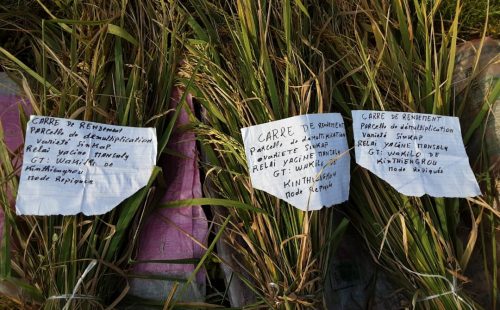 CARRE DE RENDEMENT
PARCELLE de démultiplication
Variété SinKAP
Relai yacine MANSALY
GT: WAKILO DE
Kinthiengrou
Mode Repiquer
CARRE DE RENDEMENT
PARCELLE de démultiplication
VARIETÉ SINKAP
RELAI YACINE MANSALY
GT: WAKILO DE
KINTHIENGROU
Mode
CARRE DE RENDEMENT
PARCELLE de démultiplication
Variété SINKAP
RELAI YACINE MANSALY
GT: WAKILO DE
KINTHIENGROU
Mode Repiqués